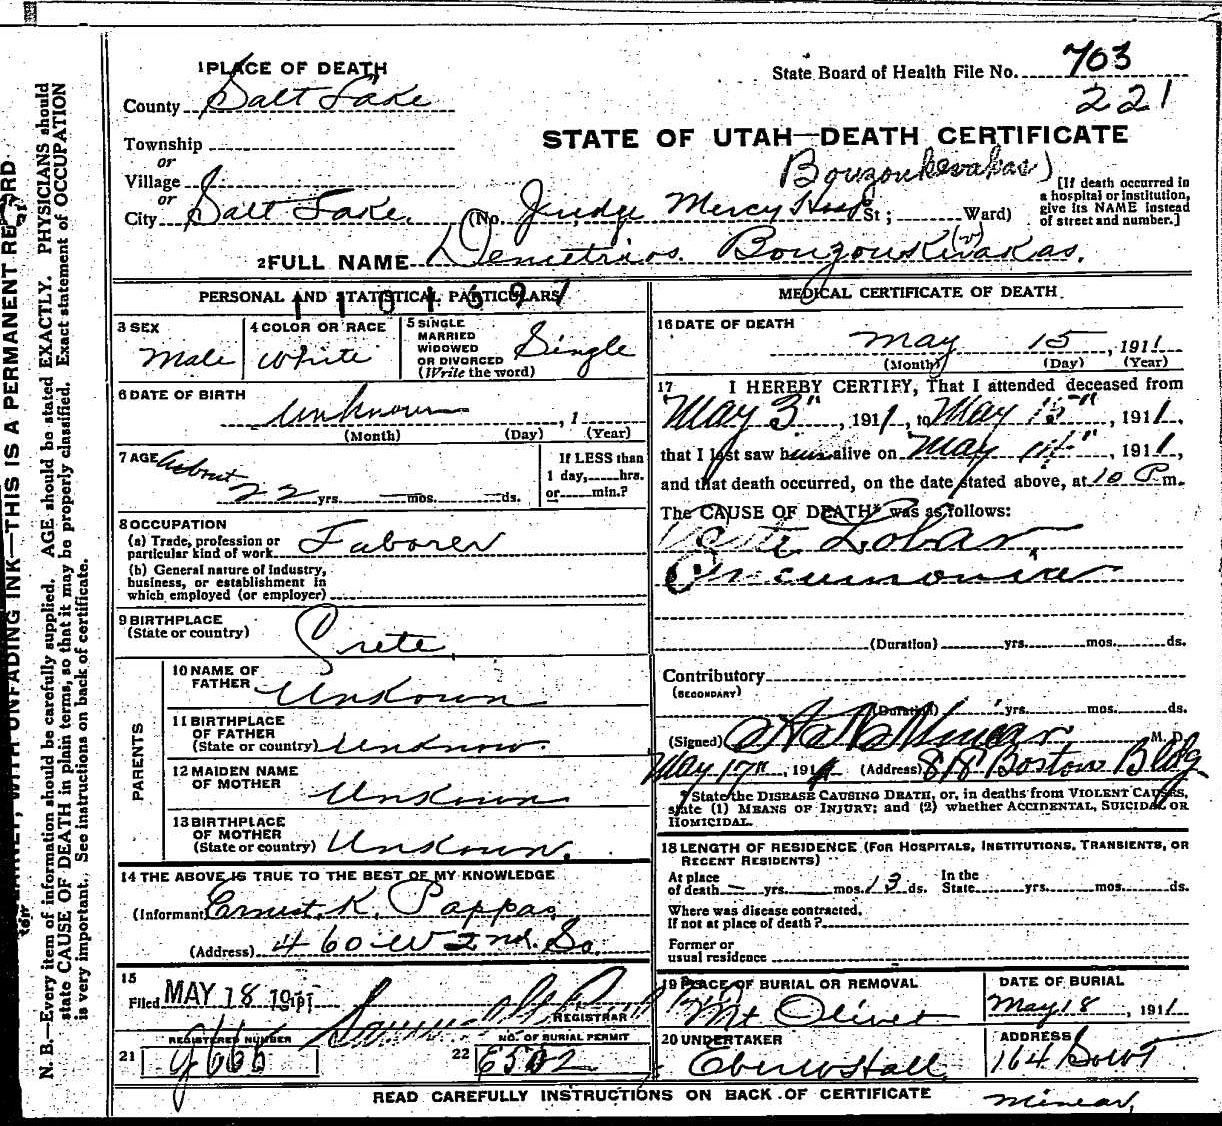 1 PLACE OF DEATH
County Salt Lake
Township
or
Village
or
City Salt Lake. (No. Judge Mercy Hosp St; Ward)
State Board of Health File No. 703
221
STATE OF UTAH—DEATH CERTIFICATE
Bouzoukevakas)
[If death occurred in
a hospital or institution,
give its NAME instead
of street and number.]
2 FULL NAME Demetrios Bouzouskivakas. (v)
PERSONAL AND STATISTICAL PARTICULARS
3 SEX
Male
4 COLOR OR RACE
White
5 SINGLE
MARRIED
WIDOWED
OR DIVORCED
(Write the word)
Single
6 DATE OF BIRTH
Unknown, 1
(Month) (Day) (Year)
7 AGE About
22 yrs. — mos. — ds.
If LESS than
1 day, hrs.
or min.?
8 OCCUPATION
(a) Trade, profession or
particular kind of work Laborer
(b) General nature of industry,
business, or establishment in
which employed (or employer)
9 BIRTHPLACE
(State or country) Crete.
PARENTS
10 NAME OF
FATHER Unkown
11 BIRTHPLACE
OF FATHER
(State or country) Unknow.
12 MAIDEN NAME
OF MOTHER Unkown
13 BIRTHPLACE
OF MOTHER
(State or country) Unkown.
14 THE ABOVE IS TRUE TO THE BEST OF MY KNOWLEDGE
(Informant Ernest. K. Pappas
(Address) 460 W 2nd. So.
15
Filed MAY 18 1911
REGISTRAR
21 REGISTERED NUMBER
22 NO. OF BURIAL PERMIT
E5502
MEDICAL CERTIFICATE OF DEATH
16 DATE OF DEATH
May 15, 1911
(Month) (Day) (Year)
17 I HEREBY CERTIFY, That I attended deceased from
May 3", 1911, to May 15", 1911,
that I last saw him alive on May 14", 1911,
and that death occurred, on the date stated above, at 10 P.m.
The CAUSE OF DEATH* was as follows:
Lobar
Pneumonia
(Duration) yrs. mos. ds.
Contributory
(SECONDARY)
(Duration) yrs. mos. ds.
(Signed) Minear M. D.
May 17", 1911 (Address) 818 Boston Bldg
* State the DISEASE CAUSING DEATH, or, in deaths from VIOLENT CAUSES,
state (1) MEANS OF INJURY; and (2) whether ACCIDENTAL, SUICIDAL OR
HOMICIDAL.
18 LENGTH OF RESIDENCE (FOR HOSPITALS, INSTITUTIONS, TRANSIENTS, OR
RECENT RESIDENTS)
At place
of death — yrs. mos. 13 ds. In the
State yrs. mos. ds.
Where was disease contracted,
If not at place of death?
Former or
usual residence
19 PLACE OF BURIAL OR REMOVAL
Mt Olivet
DATE OF BURIAL
May 18, 1911
20 UNDERTAKER
Eber W Hall
ADDRESS
READ CAREFULLY INSTRUCTIONS ON BACK OF CERTIFICATE
Minear,
WITH UNFADING INK—THIS IS A PERMANENT RECORD
N. B.—Every item of information should be carefully supplied. AGE should be stated EXACTLY. PHYSICIANS should
state CAUSE OF DEATH in plain terms, so that it may be properly classified. Exact statement of OCCUPATION
is very important. See instructions on back of certificate.